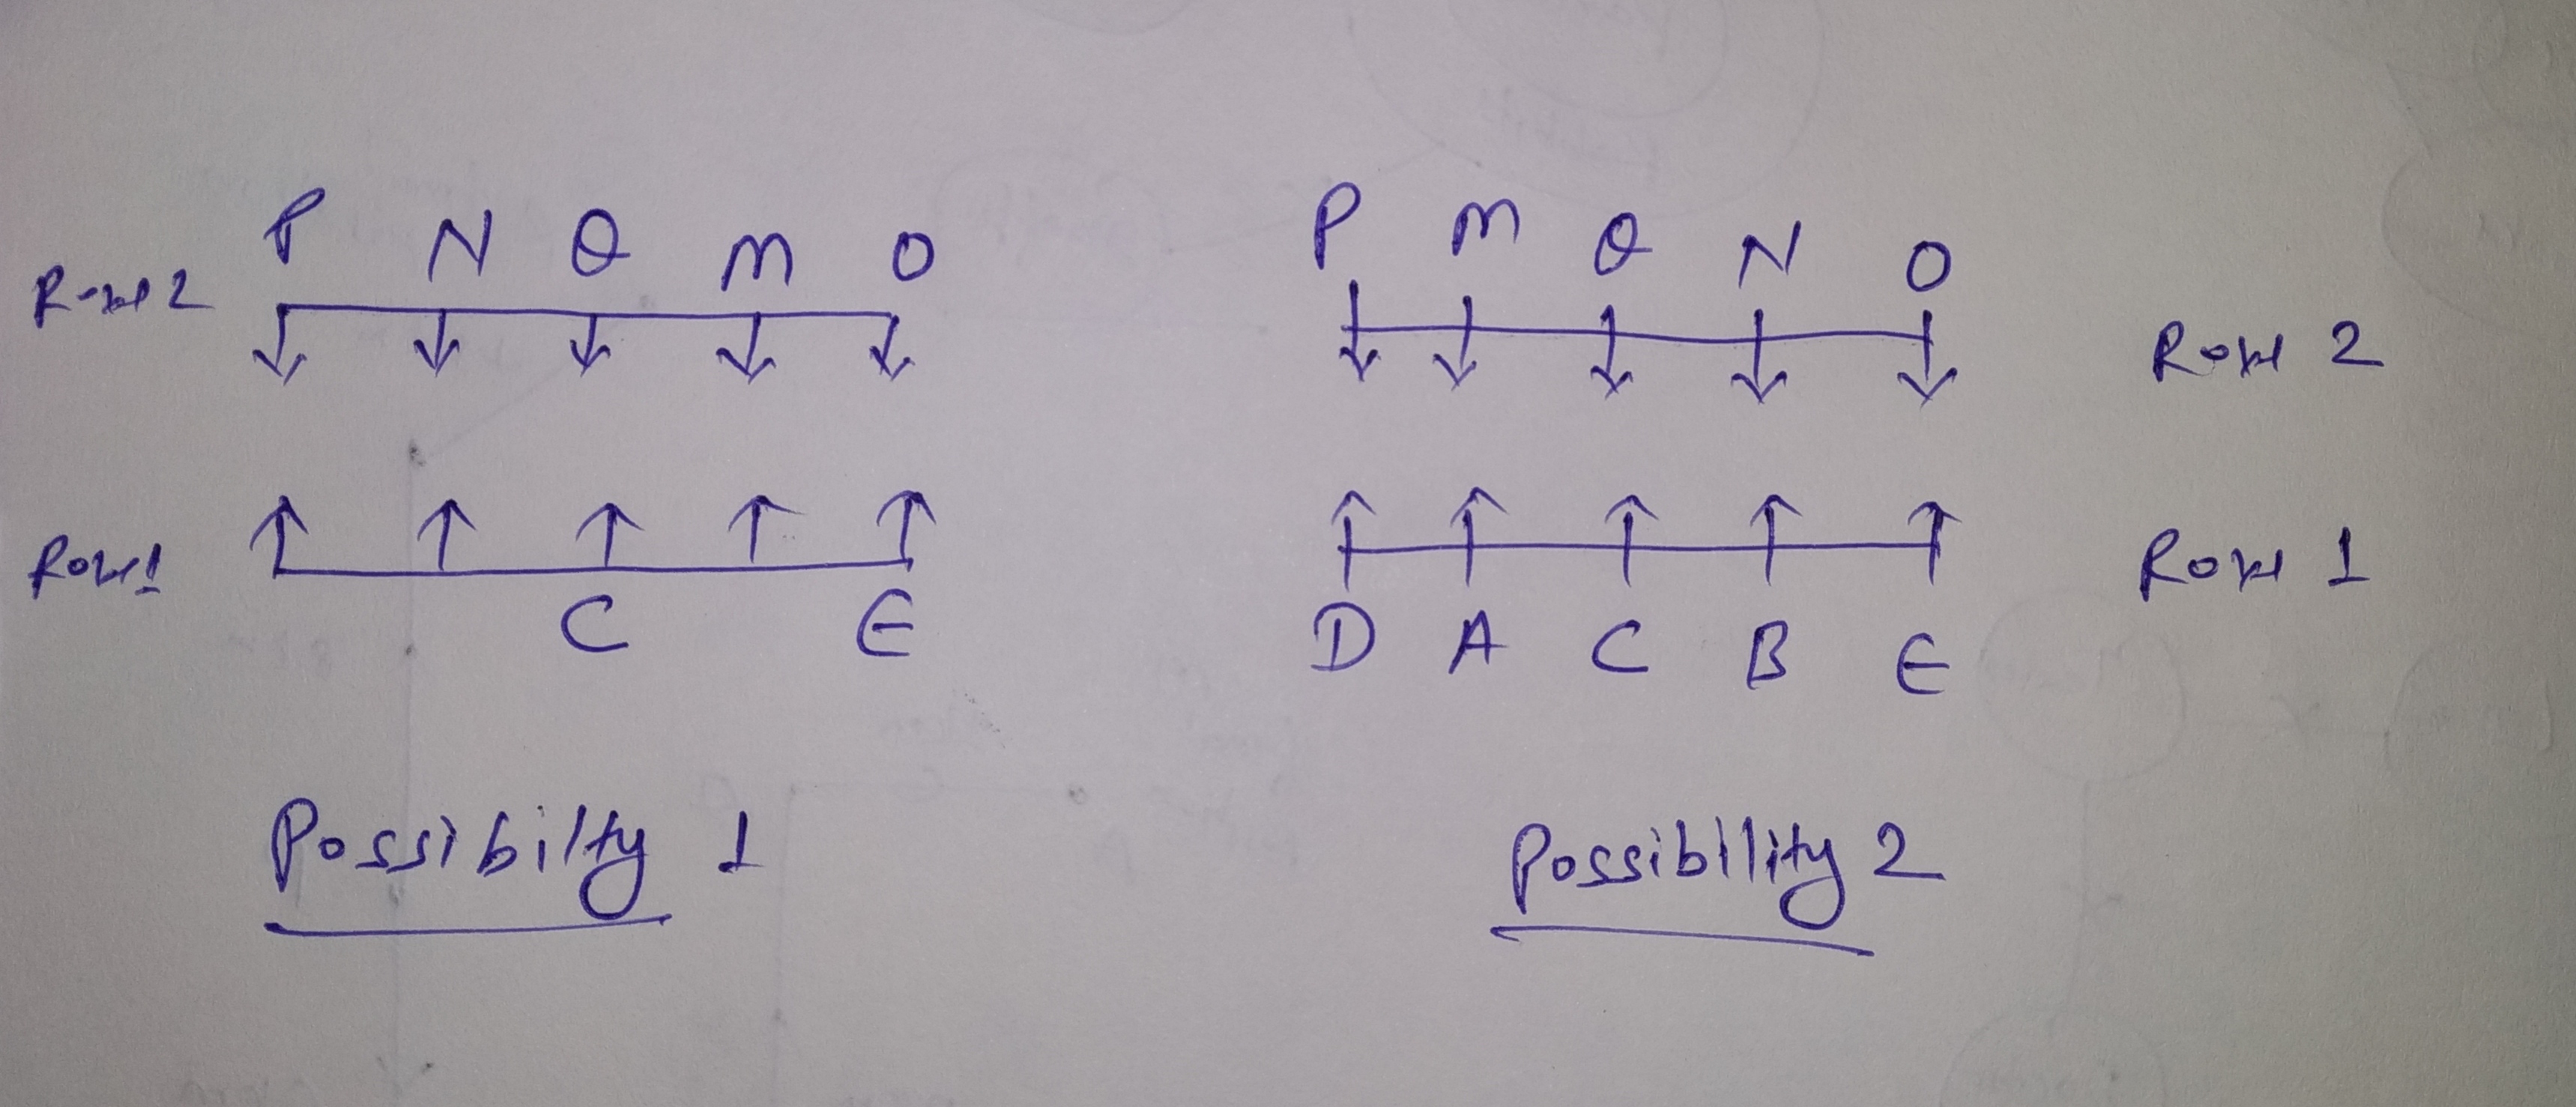 P N Q M O
Row 2
Row 1
C E
Possibilty 1
P M Q N O
Row 2
Row 1
D A C B E
Possibility 2